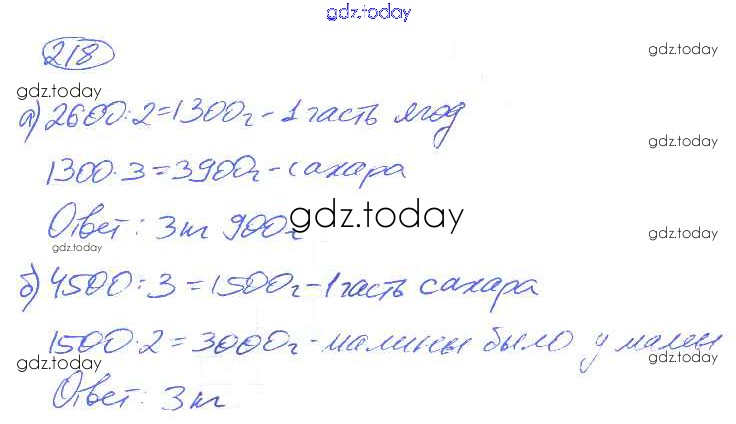 gdz.today
218
gdz.today
gdz.today
а) 2600:2=1300г-1 часть ягод
gdz.today
1300·3=3900г-сахара
Ответ: 3кг 900г
gdz.today
gdz.today
gdz.today
б) 4500:3=1500г-1 часть сахара
gdz.today
1500·2=3000г-малины было у мамы
gdz.today
gdz.today
Ответ: 3кг
gdz.today